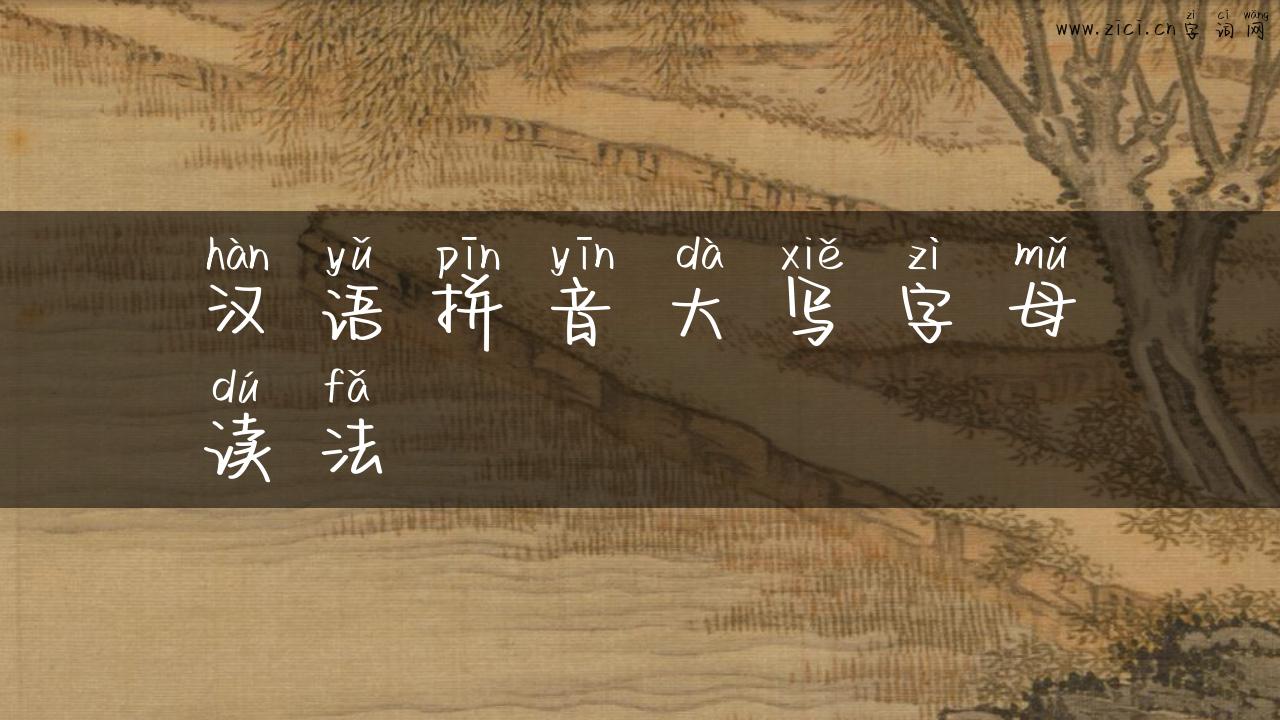 zì cí wǎng
www.zici.cn字词网
hàn yǔ pīn yīn dà xiě zì mǔ
汉语拼音大写字母
dú fǎ
读法